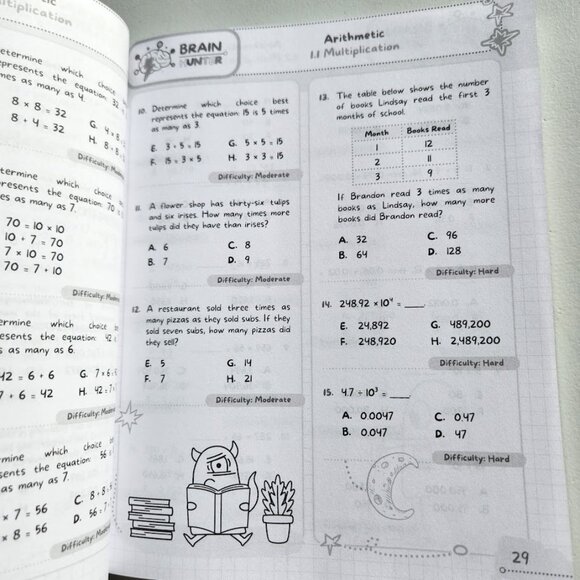 tiplication
etermine which choice
presents the equation 32
mes as many as 4.
8 × 8 = 32
8 ÷ 4 = 32
G. 4 × 8
H. 8 + 8
Difficulty: Moder
termine which choice
resents the equation 70
es as many as 7.
70 = 10 × 10
10 + 7 = 70
7 × 10 = 70
70 = 7 + 10
Difficulty: Modera
ermine which choice be
esents the equation 42 i
s as many as 6.
42 = 6 + 6
7 + 6 = 42
G. 7 × 6
H. 42 = 7
Difficulty: Modera
mine which choice
sents the equation 56
as many as 7.
× 7 = 56
× 8 = 56
C. 8 + 8
D. 56 = 7
Difficulty: Mode
BRAIN
HUNTER
Arithmetic
1.1 Multiplication
10. Determine which choice best
represents the equation 15 is 5 times
as many as 3.
E. 3 + 5 = 15
F. 15 = 3 × 5
G. 5 × 5 = 15
H. 3 × 3 = 15
Difficulty: Moderate
11. A flower shop has thirty-six tulips
and six irises. How many times more
tulips did they have than irises?
A. 6
B. 7
C. 8
D. 9
Difficulty: Moderate
12. A restaurant sold three times as
many pizzas as they sold subs. If they
sold seven subs, how many pizzas did
they sell?
E. 5
F. 7
G. 14
H. 21
Difficulty: Moderate
13. The table below shows the number
of books Lindsay read the first 3
months of school.
Month Books Read
1 12
2 11
3 9
If Brandon read 3 times as many
books as Lindsay, how many more
books did Brandon read?
A. 32
B. 64
C. 96
D. 128
Difficulty: Hard
14. 248.92 × 10⁴ = ____
E. 24,892
F. 248,920
G. 489,200
H. 2,489,200
Difficulty: Hard
15. 4.7 ÷ 10³ = ____
A. 0.0047
B. 0.047
C. 0.47
D. 47
Difficulty: Hard
29